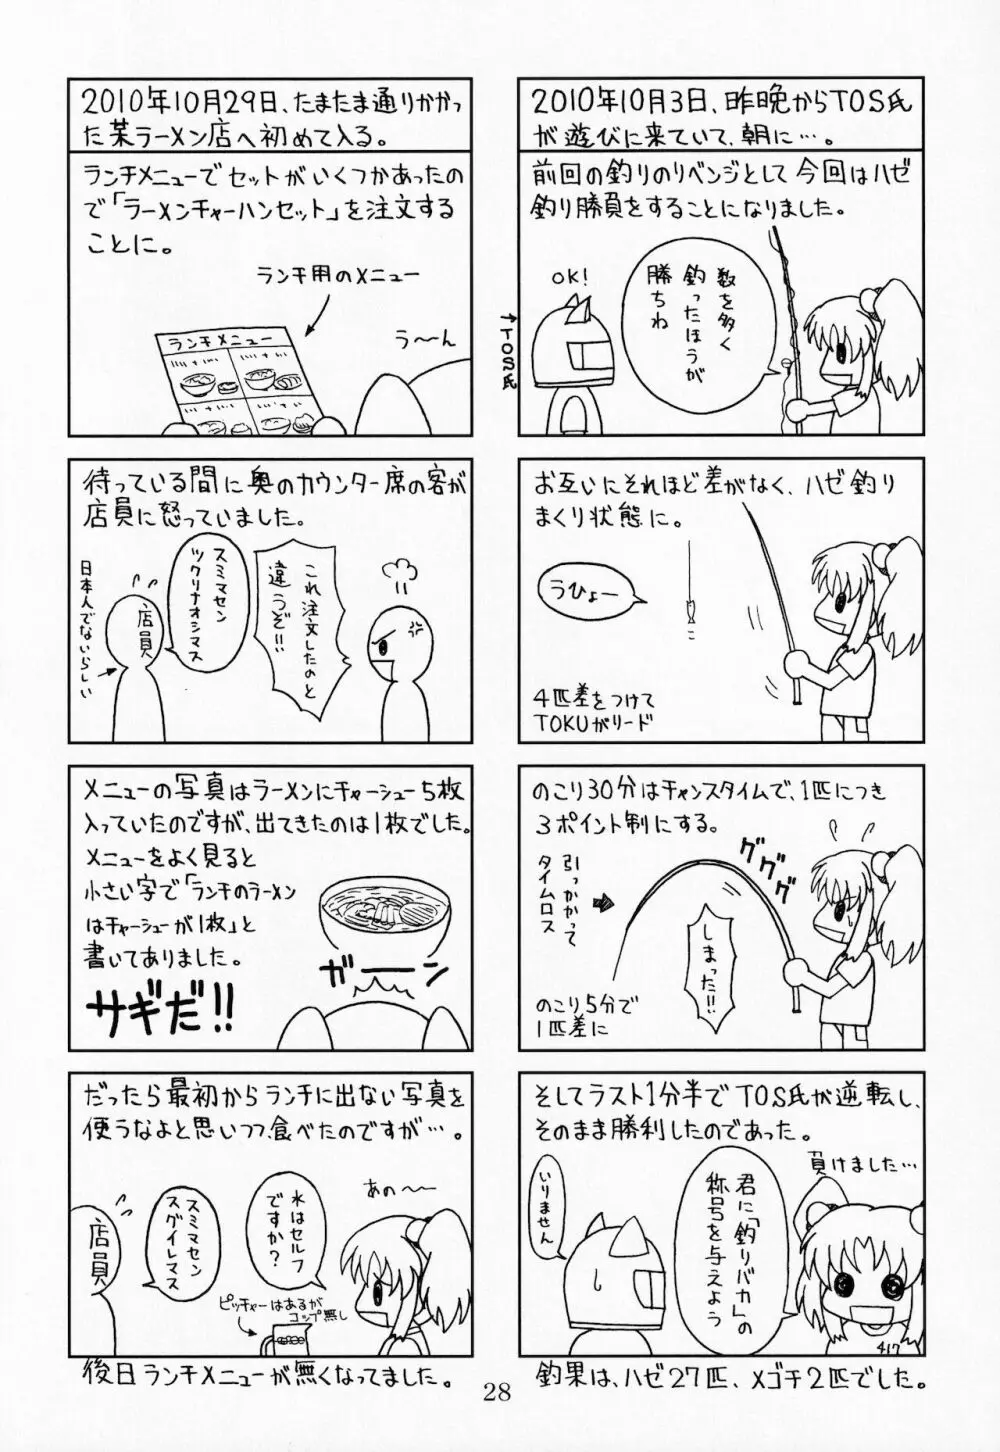 2010年10月3日、昨晩からTOS氏
が遊びに来ていて、朝に…。
前回の釣りのリベンジとして今回はハゼ
釣り勝負をすることになりました。
数を多く
釣ったほうが
勝ちね
OK!
→TOS氏
お互いにそれほど差がなく、ハゼ釣り
まくり状態に。
うひょー
4匹差をつけて
TOKUがリード
のこり30分はチャンスタイムで、1匹につき
3ポイント制にする。
グググ
引っかかって
タイムロス
しまった!!
のこり5分で
1匹差に
そしてラスト1分半でTOS氏が逆転し、
そのまま勝利したのであった。
負けました…
君に「釣りバカ」の
称号を与えよう
いりません
417
釣果は、ハゼ27匹、メゴチ2匹でした。
2010年10月29日、たまたま通りかかっ
た某ラーメン店へ初めて入る。
ランチメニューでセットがいくつかあったの
で「ラーメンチャーハンセット」を注文する
ことに。
ランチ用のメニュー
ランチメニュー
う〜ん
待っている間に奥のカウンター席の客が
店員に怒っていました。
これ注文したのと
違うぞ!!
スミマセン
ツクリナオシマス
店員
日本人でないらしい
メニューの写真はラーメンにチャーシュー5枚
入っていたのですが、出てきたのは1枚でした。
メニューをよく見ると
小さい字で「ランチのラーメン
はチャーシューが1枚」と
書いてありました。
ガーーン
サギだ!!
だったら最初からランチに出ない写真を
使うなよと思いつつ、食べたのですが…。
あの〜〜
水はセルフ
ですか?
スミマセン
スグイレマス
店員
ピッチャーはあるが
コップ無し
後日ランチメニューが無くなってました。
28